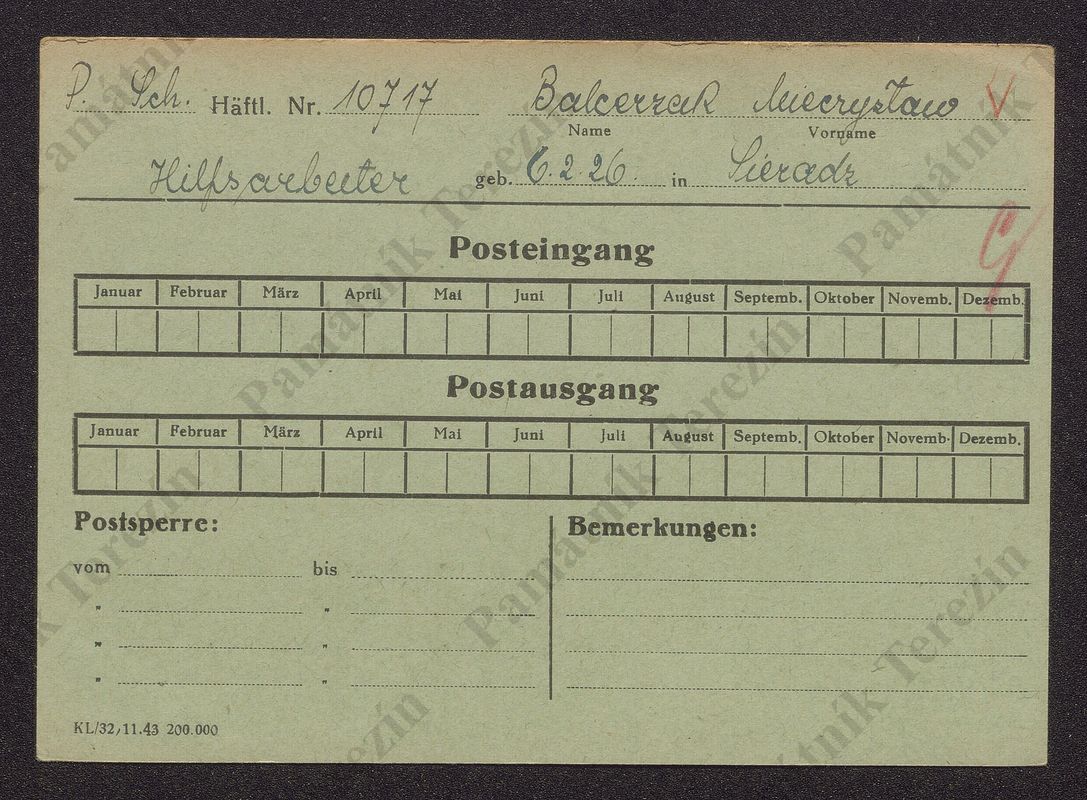 P. Sch. Häftl. Nr. 10717 Balcerzak Miecrysław V
Name Vorname
Hilfsarbeiter geb. 6.2.26. in Sieradz
Posteingang
Januar Februar März April Mai Juni Juli August Septemb. Oktober Novemb. Dezemb.
Postausgang
Januar Februar März April Mai Juni Juli August Septemb. Oktober Novemb. Dezemb.
Postsperre: Bemerkungen:
vom bis
" "
" "
" "
KL/32, 11.43 200.000
Památník Terezín